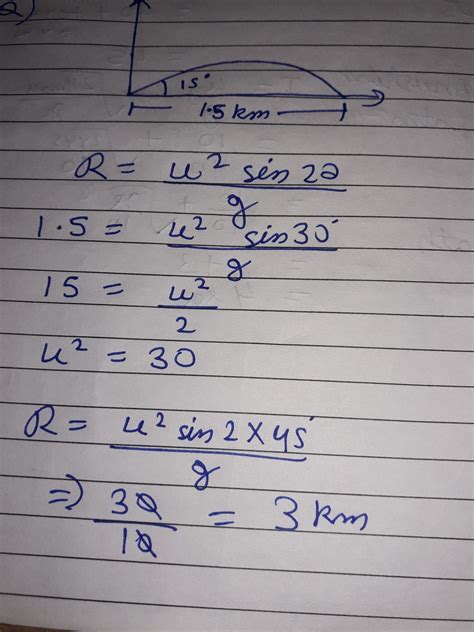 Q)
15°
1.5 km
R = u² sin 2θ / g
1.5 = u² sin30° / g
15 = u² / 2
u² = 30
R = u² sin 2 × 45° / g
⇒ 30 / 10 = 3 km